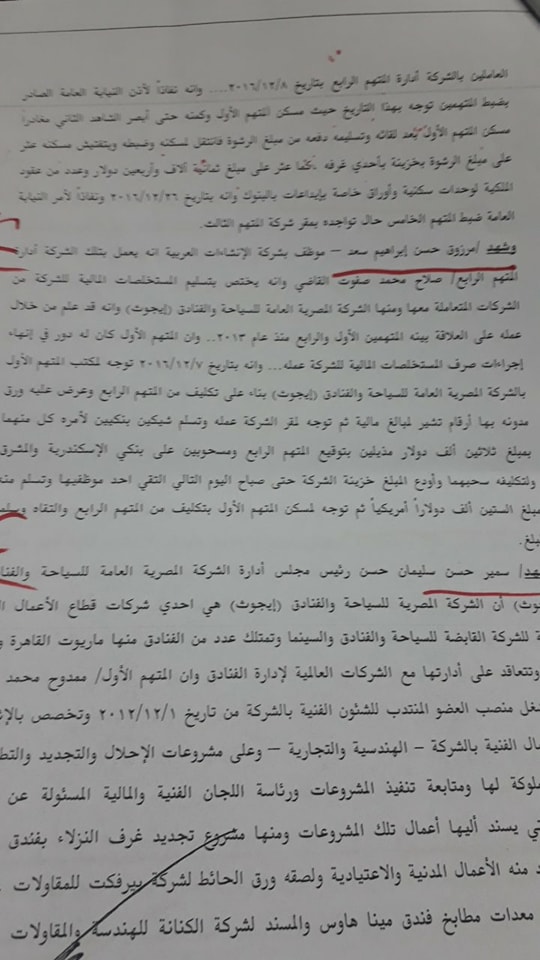 العاملين بالشركة أدارة المتهم الرابع بتاريخ ٢٠١٦/١٢/٨.... وانه نفاذاً لأذن النيابة العامة الصادر
بضبط المتهمين توجه بهذا التاريخ حيث مسكن المتهم الأول وكمنه حتى أبصر الشاهد الثاني مغادراً
مسكن المتهم الأول بعد لقائه وتسليمه دفعه من مبلغ الرشوة فانتقل لمسكنه وضبطه وبتفتيش مسكنه عثر
على مبلغ الرشوة بخزينة بأحدي غرفه .كما عثر على مبلغ ثمانية آلاف وأربعين دولار وعدد من عقود
الملكية لوحدات سكنية وأوراق خاصة بإيداعات بالبنوك وانه بتاريخ ٢٠١٦/١٢/٢٦ ونفاذاً لأمر النيابة
العامة ضبط المتهم الخامس حال تواجده بمقر شركة المتهم الثالث.
وشهد /مرزوق حسن إبراهيم سعد – موظف بشركة الإنشاءات العربية انه يعمل بتلك الشركة أدارة
المتهم الرابع/ صلاح محمد صفوت القاضي وانه يختص بتسليم المستخلصات المالية للشركة من
الشركات المتعاملة معها ومنها الشركة المصرية العامة للسياحة والفنادق (إيجوث) وانه قد علم من خلال
عمله على العلاقة بينه المتهمين الأول والرابع منذ عام ٢٠١٣.. وان المتهم الأول كان له دور في إنهاء
إجراءات صرف المستخلصات المالية للشركة عمله... وانه بتاريخ ٢٠١٦/١٢/٧ توجه لمكتب المتهم الأول
بالشركة المصرية العامة للسياحة والفنادق (إيجوث) بناء على تكليف من المتهم الرابع وعرض عليه ورق
مدونه بها أرقام تشير لمبالغ مالية ثم توجه لمقر الشركة عمله وتسلم شيكين بنكيين لأمره كل منهما
بمبلغ ثلاثين ألف دولار مذيلين بتوقيع المتهم الرابع ومسحوبين على بنكي الإسكندرية والمشرق
ولتكليفه سحبهما وأودع المبلغ خزينة الشركة حتى صباح اليوم التالي التقي احد موظفيها وتسلم منه
مبلغ الستين ألف دولاراً أمريكياً ثم توجه لمسكن المتهم الأول بتكليف من المتهم الرابع والتقاه وسلمه
بلغ.
هد/ سمير حسن سليمان حسن رئيس مجلس أدارة الشركة المصرية العامة للسياحة والفنا
وث) أن الشركة المصرية للسياحة والفنادق (إيجوث) هي احدي شركات قطاع الأعمال ال
ة للشركة القابضة للسياحة والفنادق والسينما وتمتلك عدد من الفنادق منها ماريوت القاهرة و
وتتعاقد على أدارتها مع الشركات العالمية لإدارة الفنادق وان المتهم الأول/ ممدوح محمد
شغل منصب العضو المنتدب للشئون الفنية بالشركة من تاريخ ٢٠١٢/١٢/١ وتخصص بالإ
مال الفنية بالشركة – الهندسية والتجارية – وعلى مشروعات الإحلال والتجديد والتط
ملوكة لها ومتابعة تنفيذ المشروعات ورئاسة اللجان الفنية والمالية المسئولة عن
تي يسند أليها أعمال تلك المشروعات ومنها مشروع تجديد غرف النزلاء بفندق
د منه الأعمال المدنية والاعتيادية ولصقه ورق الحائط لشركة بيرفكت للمقاولات
معدات مطابخ فندق مينا هاوس والمسند لشركة الكنانة للهندسة والمقاولات